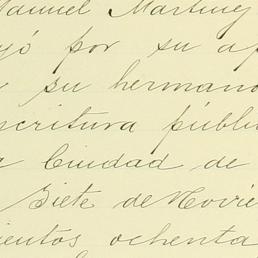 Manuel Martinez
jó por su ap
su hermano
scritura públi
Ciudad de
Siete de Novie
ientos ochenta